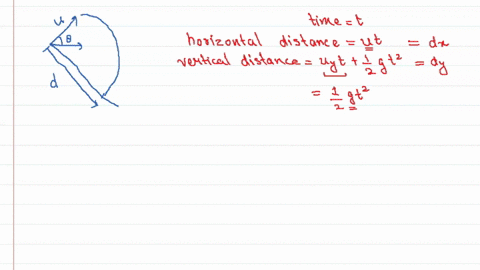 u
θ
d
time = t
horizontal distance = ut = dx
vertical distance = uyt + 1/2 gt² = dy
= 1/2 gt²